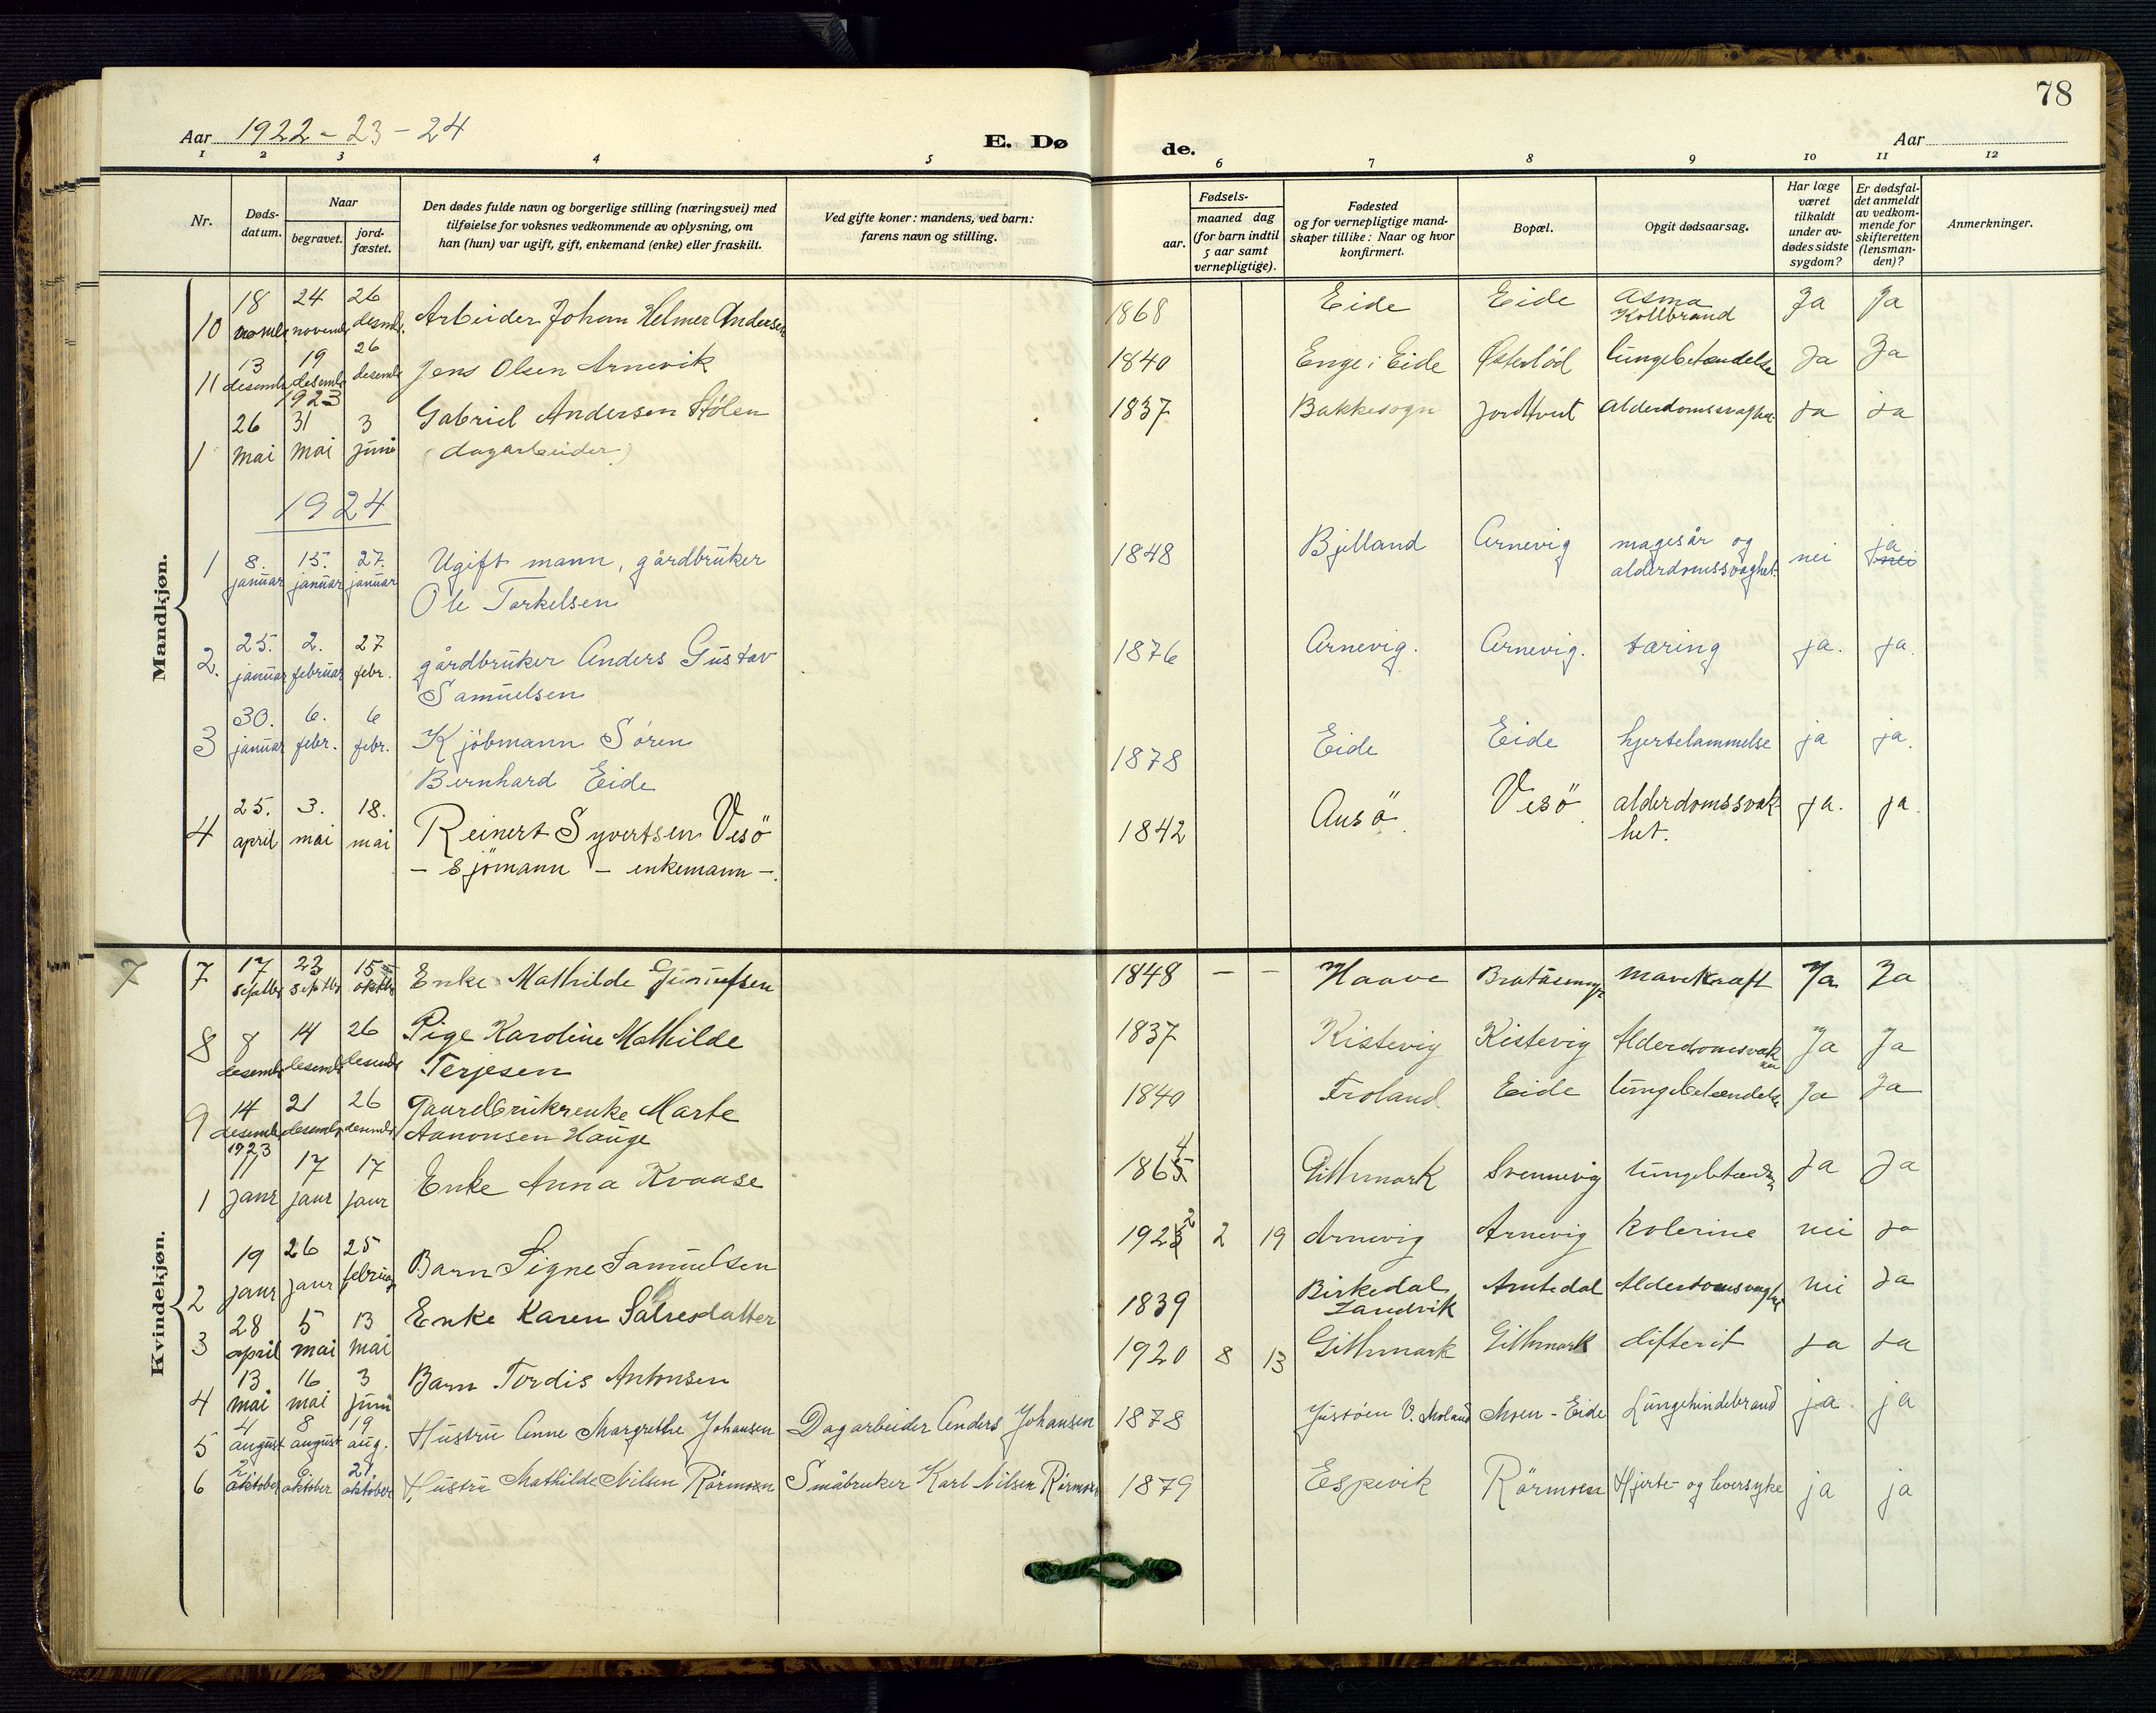 78
Aar 1922 - 23 - 24
E. Dø
de.
Aar
1 2 3 4 5 6 7 8 9 10 11 12
Nr.
Døds-
datum.
Naar
begravet.
jord-
fæstet.
Den dødes fulde navn og borgerlige stilling (næringsvei) med
tilføielse for voksnes vedkommende av oplysning, om
han (hun) var ugift, gift, enkemand (enke) eller fraskilt.
Ved gifte koner: mandens, ved barn:
farens navn og stilling.
Fødsels-
aar.
maaned dag
(for barn indtil
5 aar samt
vernepligtige).
Fødested
og for vernepligtige mand-
skaper tillike: Naar og hvor
konfirmert.
Bopæl.
Opgit dødsaarsag.
Har læge
været
tilkaldt
under av-
dødes sidste
sygdom?
Er dødsfal-
det anmeldt
av vedkom-
mende for
skifteretten
(lensman-
den)?
Anmerkninger.
Mandkjøn.
10 18 24 novembr 26 desmbr. Arbeider Johan Helmer Andersen 1868 Eide Eide Asma Koldbrand Ja Ja
11 13 desembr 19 desembr 26 desembr Jens Olsen Arnevik 1840 Enge i Eide Østerlød lungebetændelse Ja Ja
1923
1 26 mai 31 mai 3 juni Gabriel Andersen Stølen 1837 Bakkesogn Alderdomssvaghet ja ja
(dagarbeider)
1924
1 8. januar 15. januar 27. januar Ugift mann, gårdbruker 1848 Bjelland Arnevig magesår og nei ja nei
Ole Torkelsen alderdomssvaghet.
2. 25. januar 2. februar 27 febr. gårdbruker Anders Gustav 1876 Arnevig. Arnevig. tæring ja. ja.
Samuelsen
3 30. januar 6. febr. 6 febr. Kjöbmann Sören 1878 Eide Eide hjertelammelse ja ja.
Bernhard Eide
4 25. april 3. mai 18. mai Reinert Syvertsen Vesö 1842 Ausö. Vesö. alderdomssvak- ja. ja.
- Sjömann - enkemann -. het.
Kvindekjøn.
7
7 17 septbr 23 septbr 15 oktbr Enke Mathilde 1848 - - Haave mavekræft Ja Ja
8 8 desembr 14 desembr 26 desembr Pige Karoline Mathilde 1837 Kistevig Kistevig Alderdomsvak Ja Ja
Terjesen
9 14 desembr 21 desembr 26 desembr Gaardbrukrenke Marte 1840 Froland Eide lungebetændelse Ja Ja
Aanonsen Hauge
1923
1 11 janr 17 janr 17 janr Enke Anna Kvaase 1865 4 Githmark Svennevig ja Ja
2 19 janr 26 janr 25 februar Barn Signe Samuelsen 1923 2 2 19 Arnevig Arnevig kolerine nei ja
3 28 april 5 mai 13 mai Enke Karen Salvesdatter 1839 Birkedal Landvik Alderdomsvaghet nei Ja
4 13 mai 16 mai 3 juni Barn Tordis Antonsen 1920 8 13 Githmark Githmark difterit ja ja
5 4 august 8 august 19 aug. Hustru Anne Margrethe Johansen Dagarbeider Anders Johansen 1878 Justöen V. Moland Moen - Eide Lungehindebrand ja ja
6 2 oktober 6 oktober 21 oktober Hustru Mathilde Nilsen Rörmoen Småbruker Karl Nilsen Rörmoen 1879 Espevik Rörmoen Hjerte- og leversyke ja ja